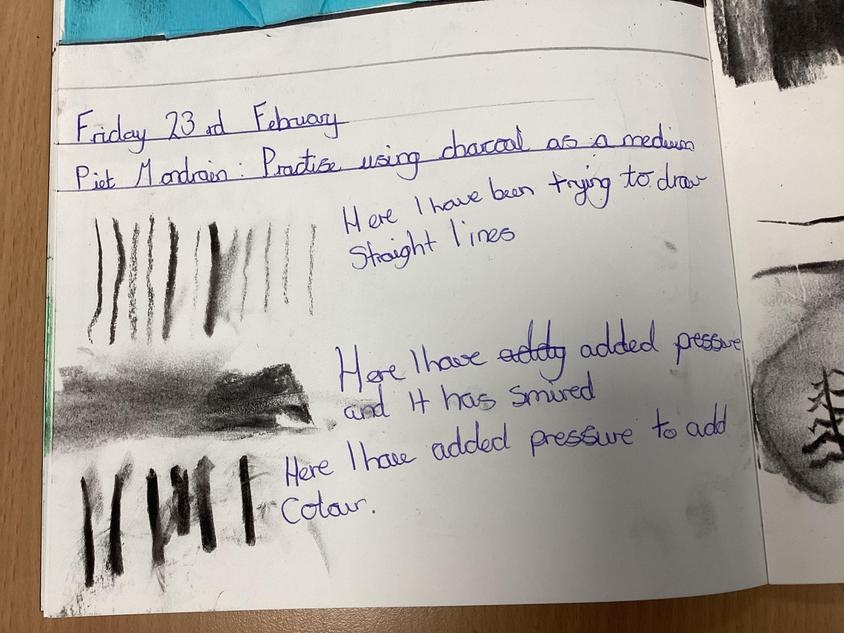 Friday 23rd February
Piet Mondrain: Practise using charcoal as a medium
Here I have been trying to draw
Straight lines
Here I have adddy added pressure
and it has smired
Here I have added pressure to add
Colour.